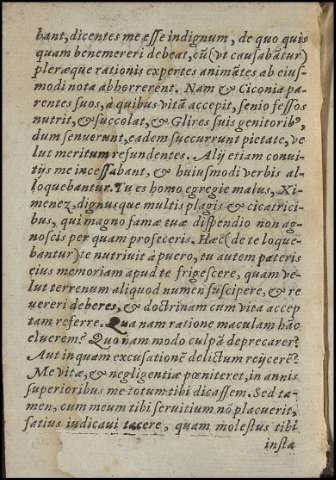 bant, dicentes me esse indignum, de quo quis
quam benemereri debeat, cũ (vt causabãtur)
pleræque rationis expertes animãtes ab eius-
modi nota abhorrerent. Nam & Ciconia pa-
rentes suos, à quibus vitã accepit, senio fessos
nutrit, & succolat, & Glires suis genitoribᵒ,
dum senuerunt, eadem succurrunt pietate, ve
lut meritum refundentes. Alij etiam conui-
tijs me incessabant, & huiusmodi verbis al-
loquebantur. Tu es homo egregie malus, Xi-
menez, dignusque multis plagis & cicatrici-
bus, qui magno famæ tuæ dispendio non ag-
noscis per quam profeceris. Hæc (de te loque-
bantur) te nutriuit à puero, tu autem pateris
eius memoriam apud te frigescere, quam ve-
lut terrenum aliquod numen suscipere, & re
uereri deberes, & doctrinam cum vita accep-
tam referre. Qua nam ratione maculam hãc
eluerem? Quo nam modo culpã deprecarer?
Aut in quam excusationẽ delictum reijcerẽ?
Me vitæ, & negligentiæ pœniteret, in annis
superioribus me totum tibi dicassem. Sed ta-
men, cum meum tibi seruitium nõ placuerit,
satius iudicaui tacere, quam molestus tibi
insta